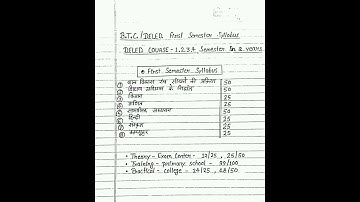 B.T.C./DELED First Semester Syllabus
DELED COURSE - 1,2,3,4 Semester in 2 years
First Semester Syllabus
① बाल विकास एवं सीखने की प्रक्रिया 50
② शिक्षण अधिगम के सिद्धांत 50
③ विज्ञान 25
④ गणित 25
⑤ सामाजिक अध्ययन 50
⑥ हिन्दी 25
⑦ संस्कृत 25
⑧ कम्प्यूटर 25
• Theory - Exam Center - 12/25, 25/50
• Training - primary school - /100
• Practical - college - /25, /50